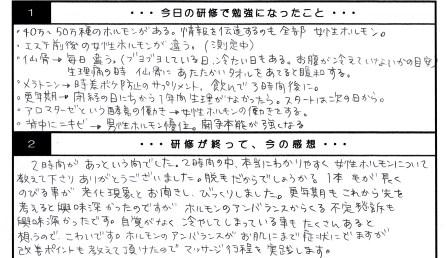 1 ・・・今日の研修で勉強になったこと・・・
・40万~50万種のホルモンがある。情報を伝達するのも全部女性ホルモン。
・エステ前後の女性ホルモンが違う。(測定中)
・仙骨→毎日違う。(ブヨブヨしている日、冷たい日もある。お腹が冷えていないかの目安)
生理痛の時 仙骨にあたたかいタオルをあてると緩和する。
・メラトニン→時差ボケ防止のサプリメント、飲んで3時間後に。
・更年期→閉経の日にちから1年間生理がなかったら。スタートは次の日から。
・アロマターゼという酵素の働き→女性ホルモンの働きをする。
・背中にニキビ→男性ホルモン優位。闘争本能が強くなる
2 ・・・研修が終って、今の感想・・・
2時間があっという間でした。2時間の中、本当にわかりやすく女性ホルモンについて
教えて下さりありがとうございました。脱毛だからでしょうか1本毛が長く
のびる事が老化現象とお聞きし、びっくりしました。更年期もこれから先を
考えると興味深かったのですがホルモンのアンバランスからくる不定愁訴も
興味深かったです。自覚がなく冷やしてしまっている事もたくさんあると
思うので、こわいです。ホルモンのアンバランスがお肌にまで症状にでますが
改善ポイントも教えて頂けたのでマッサージ行程を実践します。